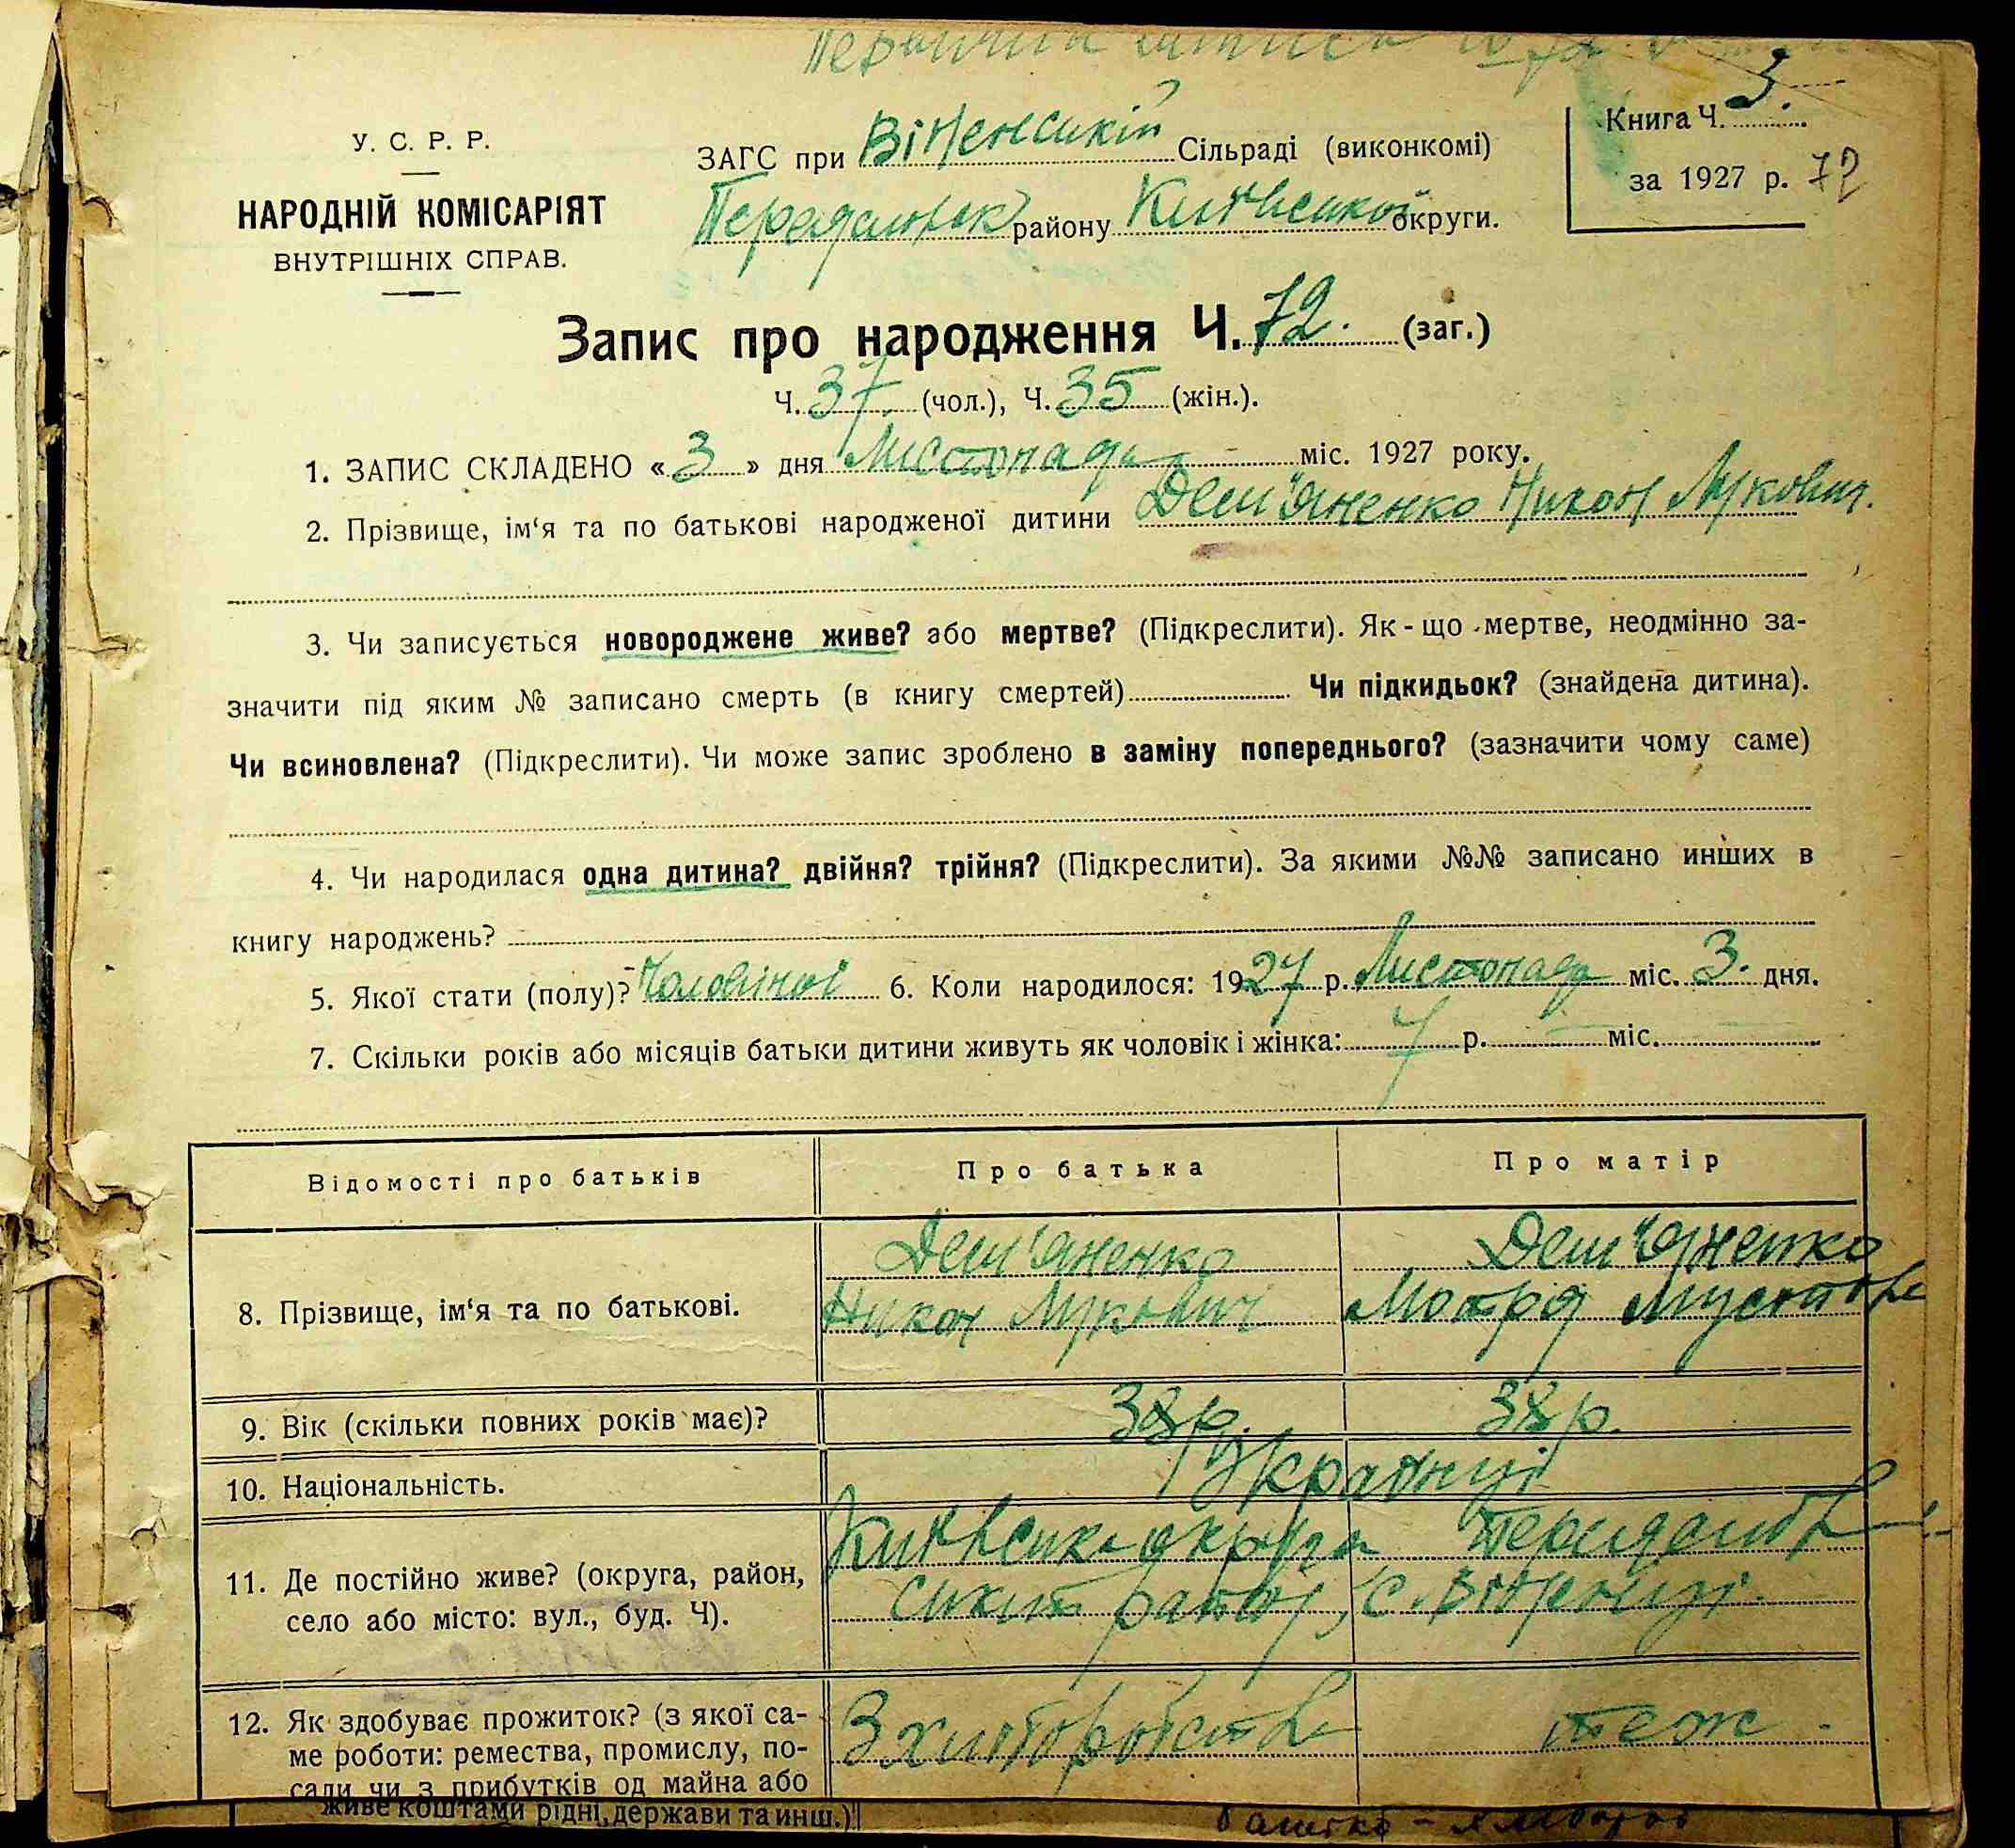 У. С. Р. Р.
НАРОДНІЙ КОМІСАРІЯТ
ВНУТРІШНІХ СПРАВ.
ЗАГС при Вітенській Сільраді (виконкомі)
району Київської округи.
Книга Ч. 3.
за 1927 р. 72
Запис про народження Ч. 72. (заг.)
Ч. 37 (чол.), Ч. 35 (жін.).
1. ЗАПИС СКЛАДЕНО « 3 » дня Листопада міс. 1927 року.
2. Прізвище, ім‘я та по батькові народженої дитини Дем'яненко Никон Лукович.
3. Чи записується новороджене живе? або мертве? (Підкреслити). Як-що мертве, неодмінно за-
значити під яким № записано смерть (в книгу смертей) Чи підкидьок? (знайдена дитина).
Чи всиновлена? (Підкреслити). Чи може запис зроблено в заміну попереднього? (зазначити чому саме)
4. Чи народилася одна дитина? двійня? трійня? (Підкреслити). За якими №№ записано инших в
книгу народжень?
5. Якої стати (полу)? Чоловічої 6. Коли народилося: 1927 р. Листопада міс. 3. дня.
7. Скільки років або місяців батьки дитини живуть як чоловік і жінка: 7 р. міс.
Відомості про батьків Про батька Про матір
8. Прізвище, ім‘я та по батькові.
Дем'яненко
Никон Лукович
Дем'яненко
Мотря
9. Вік (скільки повних років має)? 38р. 38р.
10. Національність. Українці
11. Де постійно живе? (округа, район,
село або місто: вул., буд. Ч).
Київська округа
район, с.
12. Як здобуває прожиток? (з якої са-
ме роботи: ремества, промислу, по-
сади чи з прибутків од майна або
З хліборобства теж
живе коштами рідні, держави та инш.)